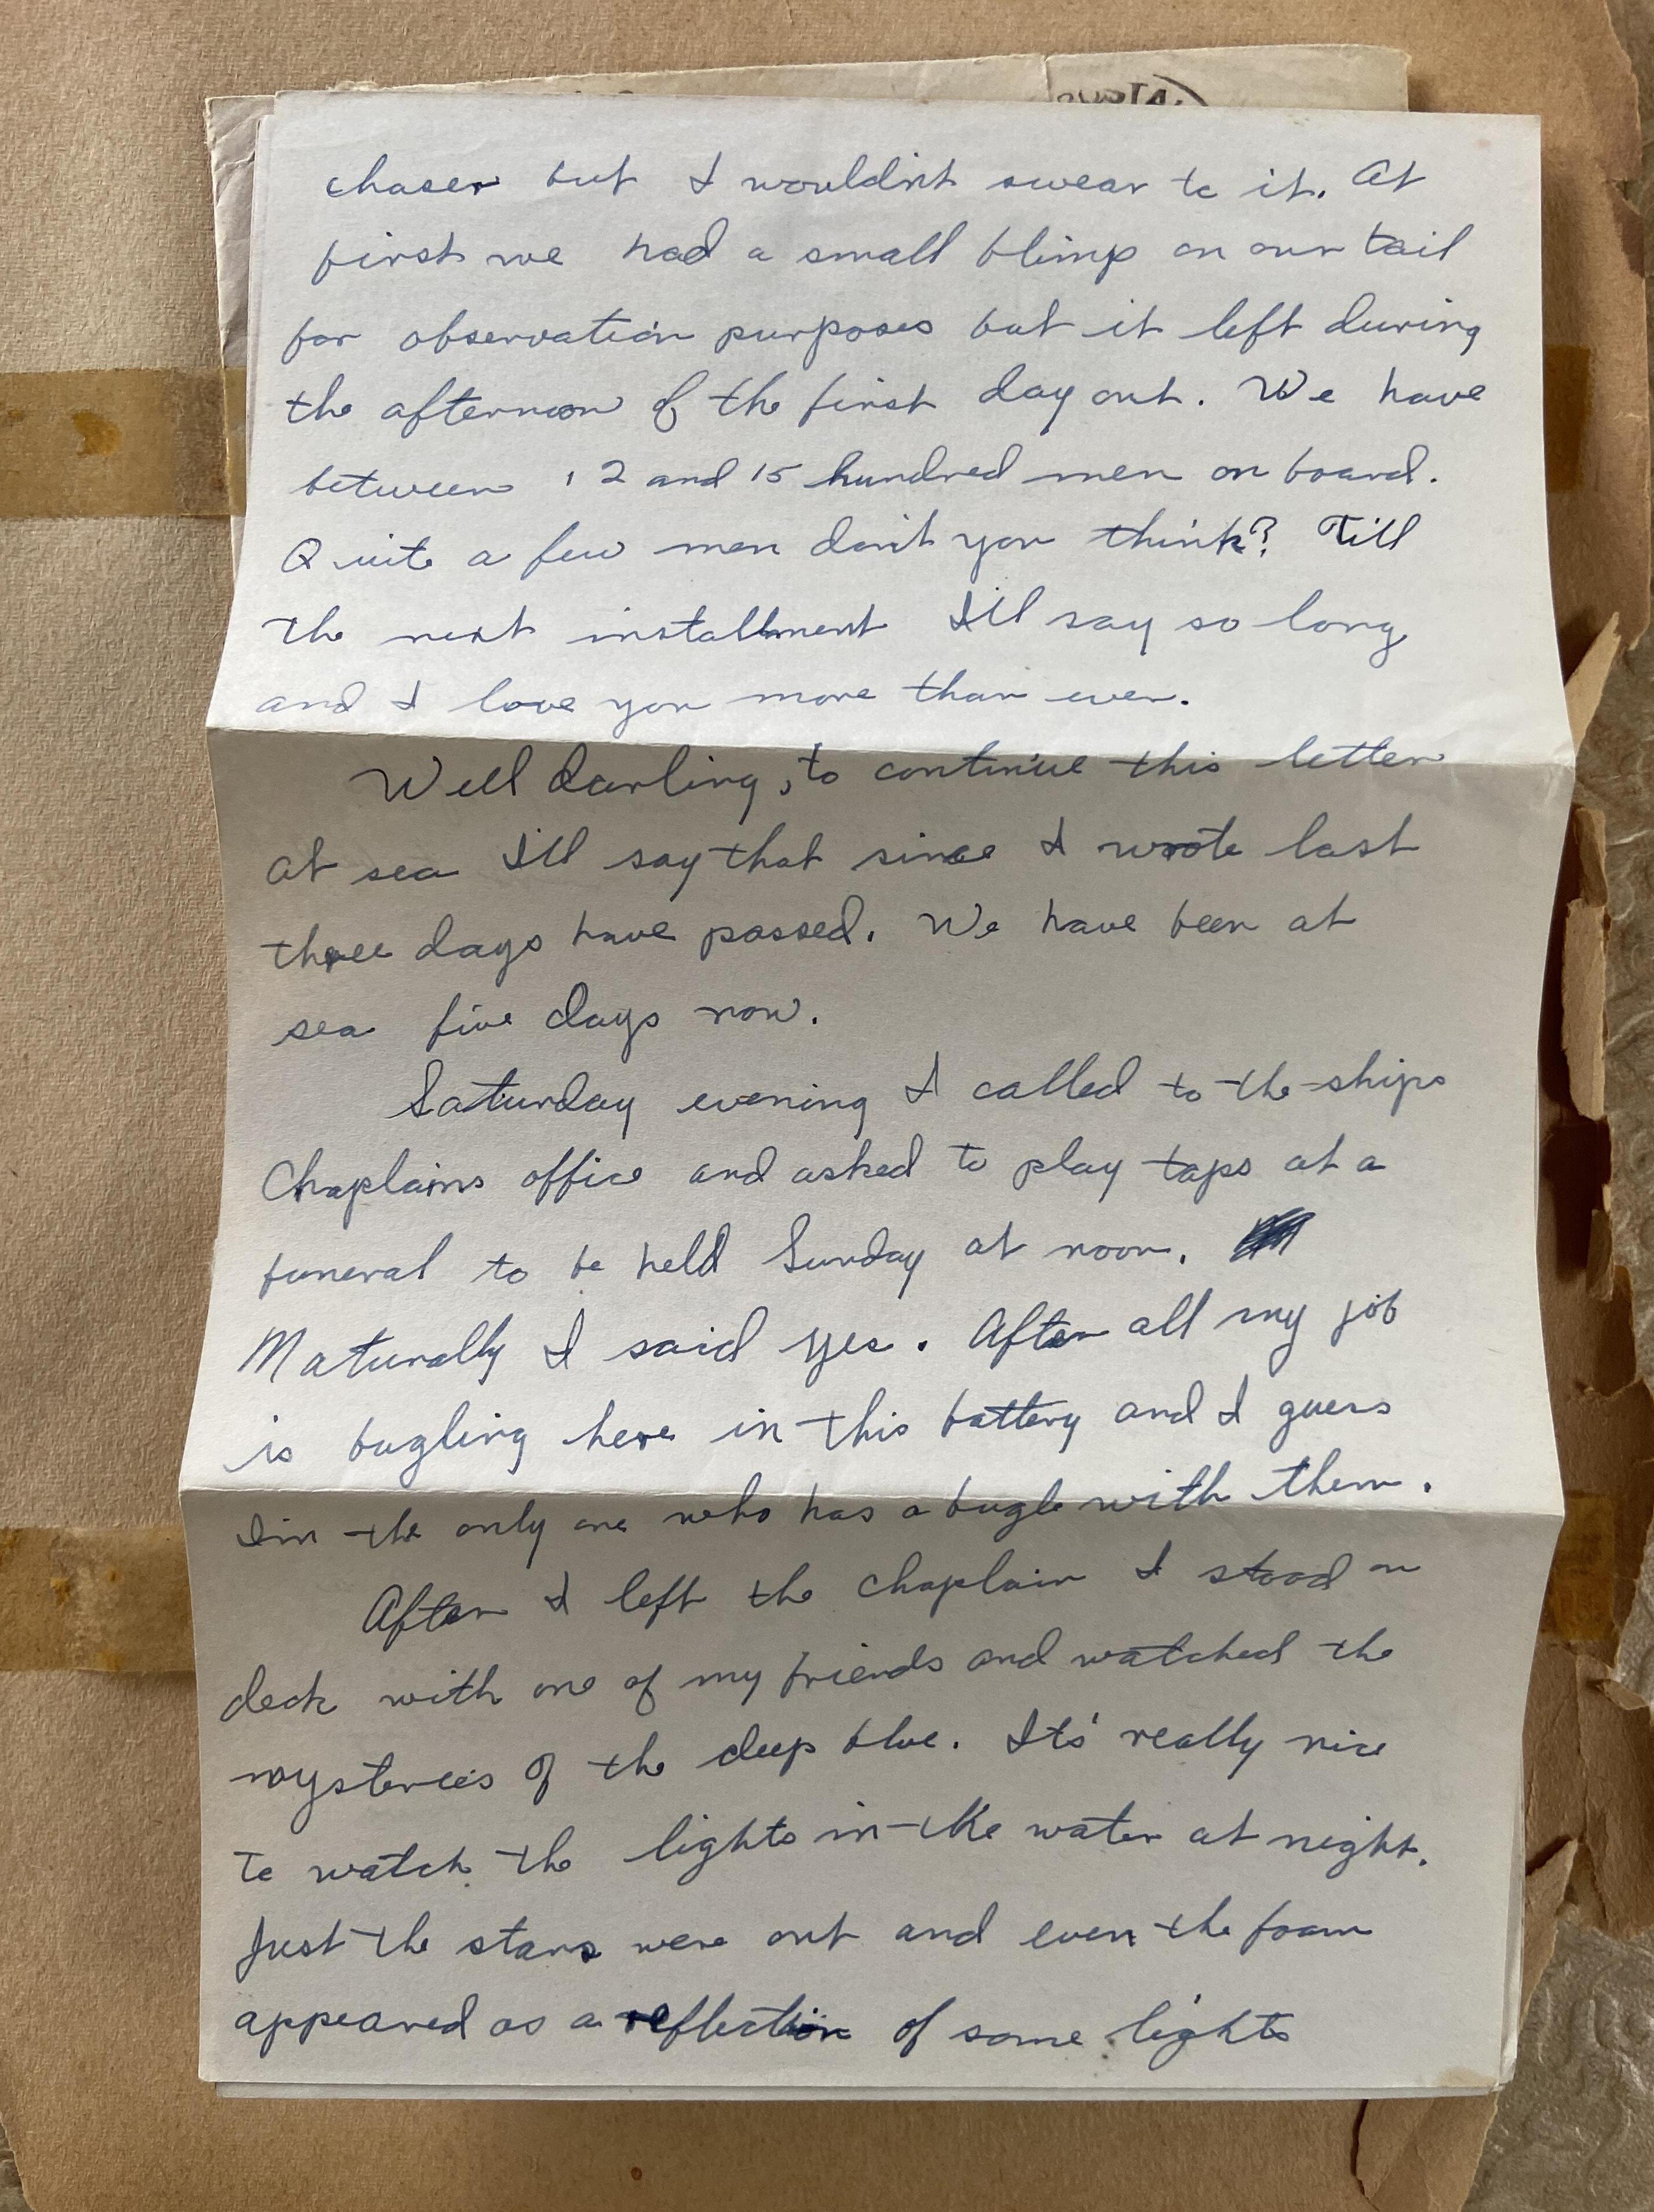 chaser but I wouldn't swear to it. At
first we had a small blimp on our tail
for observation purposes but it left during
the afternoon of the first day out. We have
between 12 and 15 hundred men on board.
Quite a few men don't you think? Till
the next installment I'll say so long
and I love you more than ever.
Well darling, to continue this letter
at sea I'll say that since I wrote last
three days have passed. We have been at
sea five days now.
Saturday evening I called to the ships
Chaplains office and asked to play taps at a
funeral to be held Sunday at noon.
Naturally I said yes. After all my job
is bugling here in this battery and I guess
I'm the only one who has a bugle with them.
After I left the chaplain I stood on
deck with one of my friends and watched the
mysteries of the deep blue. Its' really nice
to watch the lights in the water at night.
Just the stars were out and even the foam
appeared as a reflection of some lights